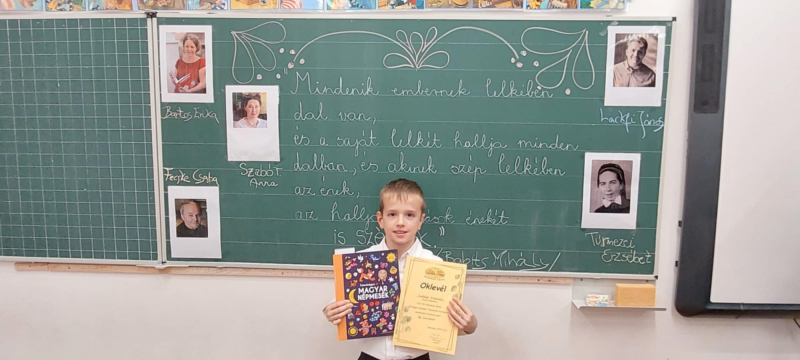 Mindenik embernek lelkében
dal van,
és a saját lelkét hallja minden
dalban, és akinek szép lelkében
az ének,
az hallja
énekét
is
/Babits Mihály/
Bartos Erika
Szabó T.
Anna
Fecske Csaba
Lackfi János
Túrmezei
Erzsébet
MAGYAR
NÉPMESÉK
Oklevél